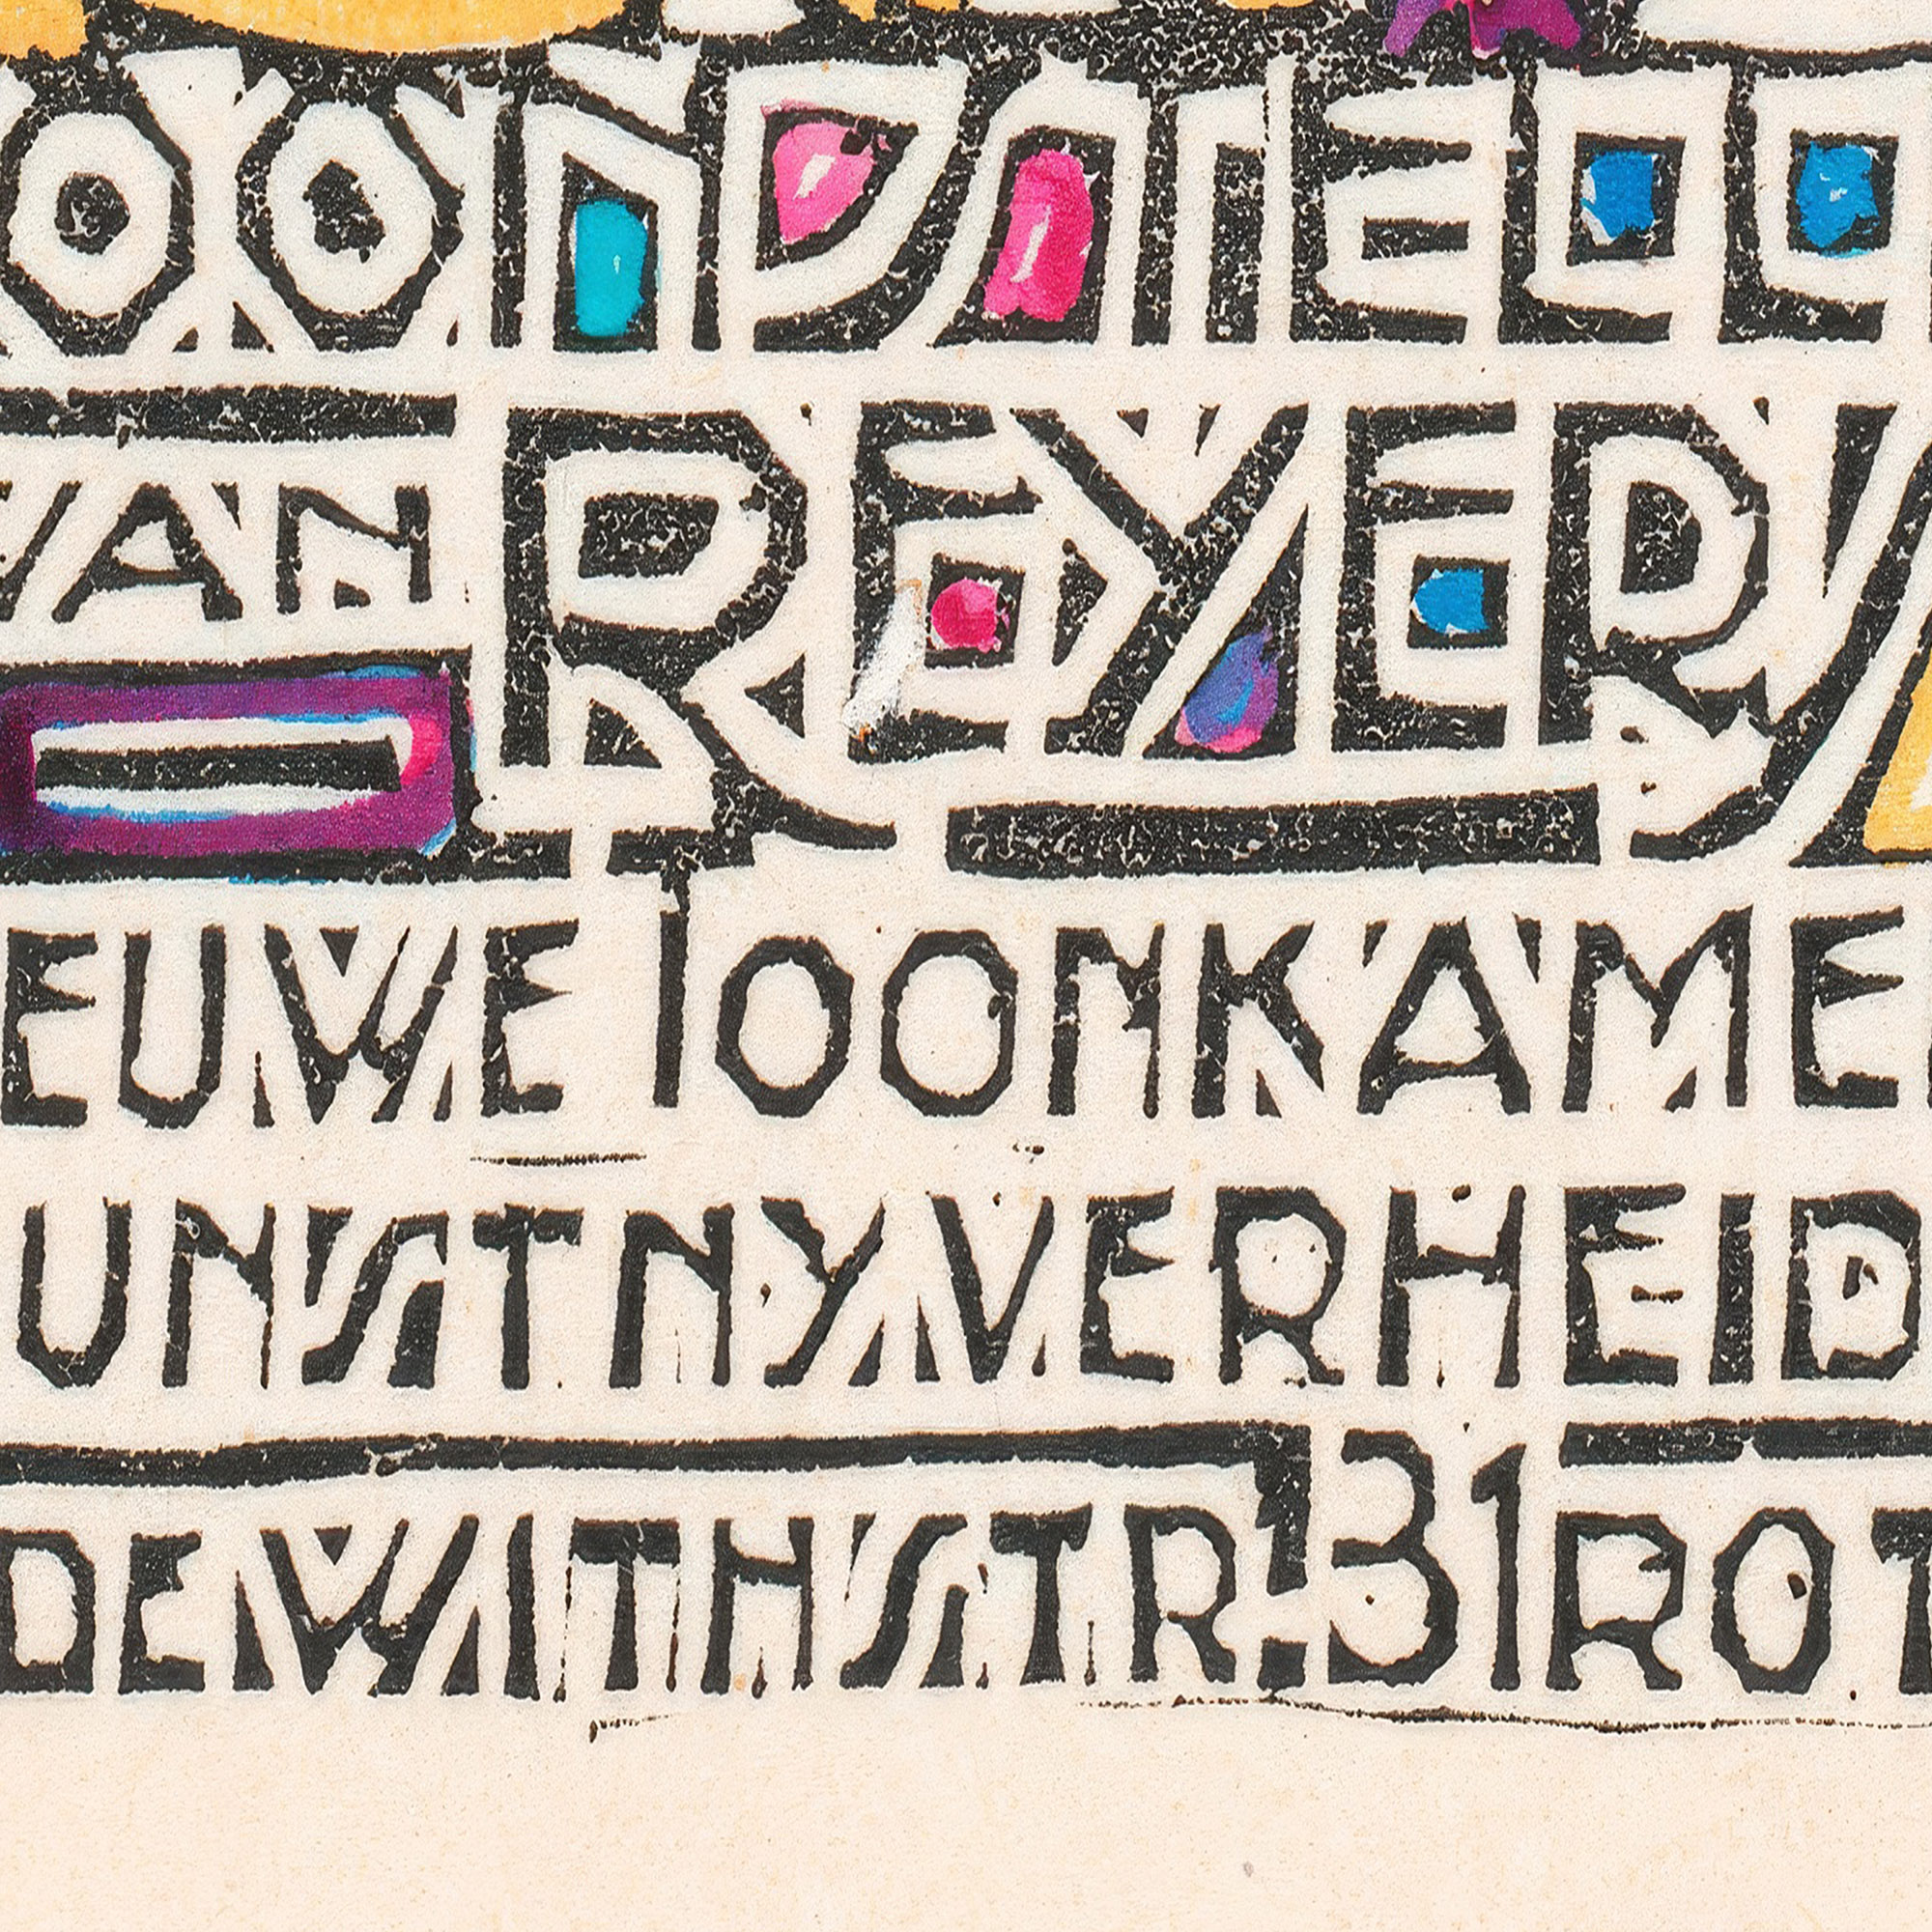 OONSTELL
VAN REYERS
EUWE TOONKAME
UNSTNYVERHEID
DE WITHSTR. 31 ROT